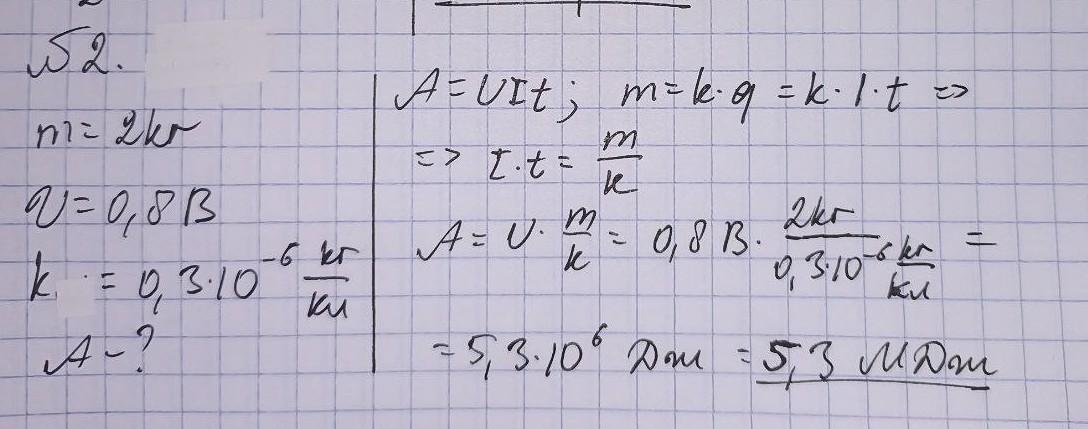 №2.
m = 2кг
U = 0,8 В
k = 0,3·10⁻⁶ кг/Кл
A - ?
A = UIt; m = k·q = k·I·t =>
=> I·t = m/k
A = U · m/k = 0,8 В · 2кг/(0,3·10⁻⁶ кг/Кл) =
= 5,3·10⁶ Дж = 5,3 МДж